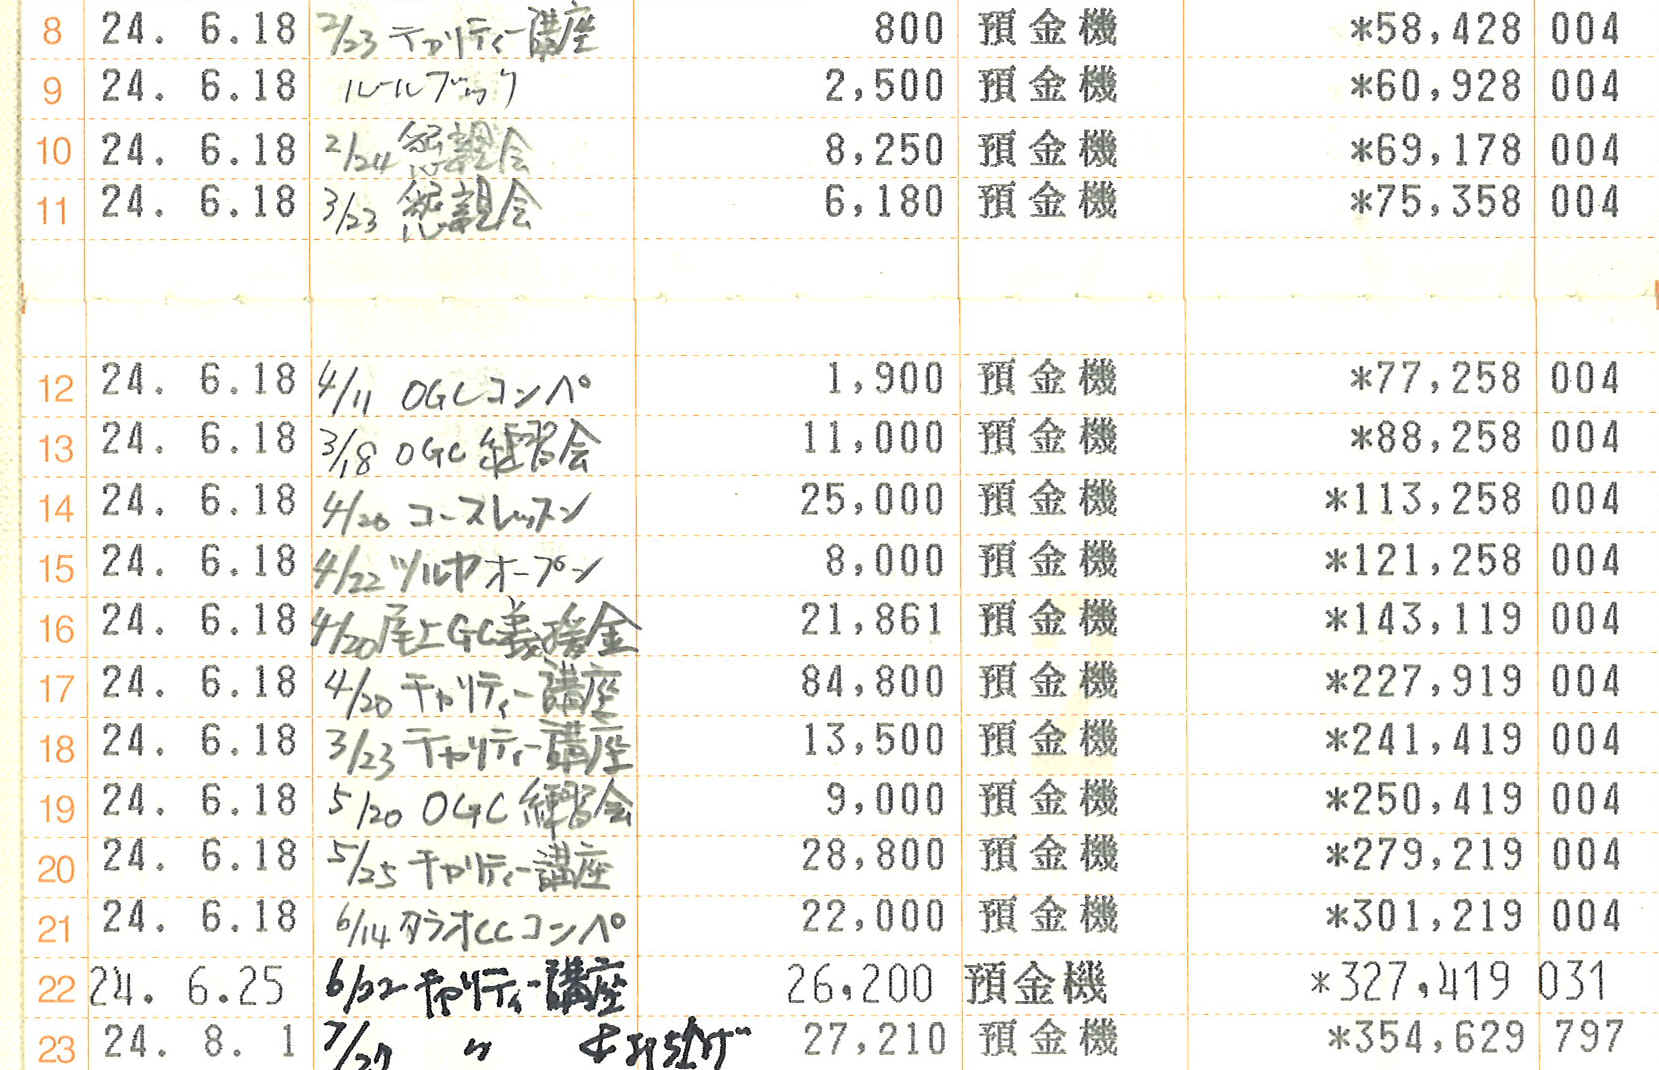 8 24. 6.18 2/23 チャリティー講座 800 預金機 *58,428 004
9 24. 6.18 ルールブック 2,500 預金機 *60,928 004
10 24. 6.18 2/24 懇親会 8,250 預金機 *69,178 004
11 24. 6.18 3/23 懇親会 6,180 預金機 *75,358 004
12 24. 6.18 4/11 OGCコンペ 1,900 預金機 *77,258 004
13 24. 6.18 3/18 OGC 練習会 11,000 預金機 *88,258 004
14 24. 6.18 4/20 コースレッスン 25,000 預金機 *113,258 004
15 24. 6.18 4/22 ツルヤオープン 8,000 預金機 *121,258 004
16 24. 6.18 4/20 尾上GC義援金 21,861 預金機 *143,119 004
17 24. 6.18 4/20 チャリティー講座 84,800 預金機 *227,919 004
18 24. 6.18 3/23 チャリティー講座 13,500 預金機 *241,419 004
19 24. 6.18 5/20 OGC 練習会 9,000 預金機 *250,419 004
20 24. 6.18 5/25 チャリティー講座 28,800 預金機 *279,219 004
21 24. 6.18 6/14 タラオCCコンペ 22,000 預金機 *301,219 004
22 24. 6.25 6/22 チャリティー講座 26,200 預金機 *327,419 031
23 24. 8. 1 7/27 〃 27,210 預金機 *354,629 797